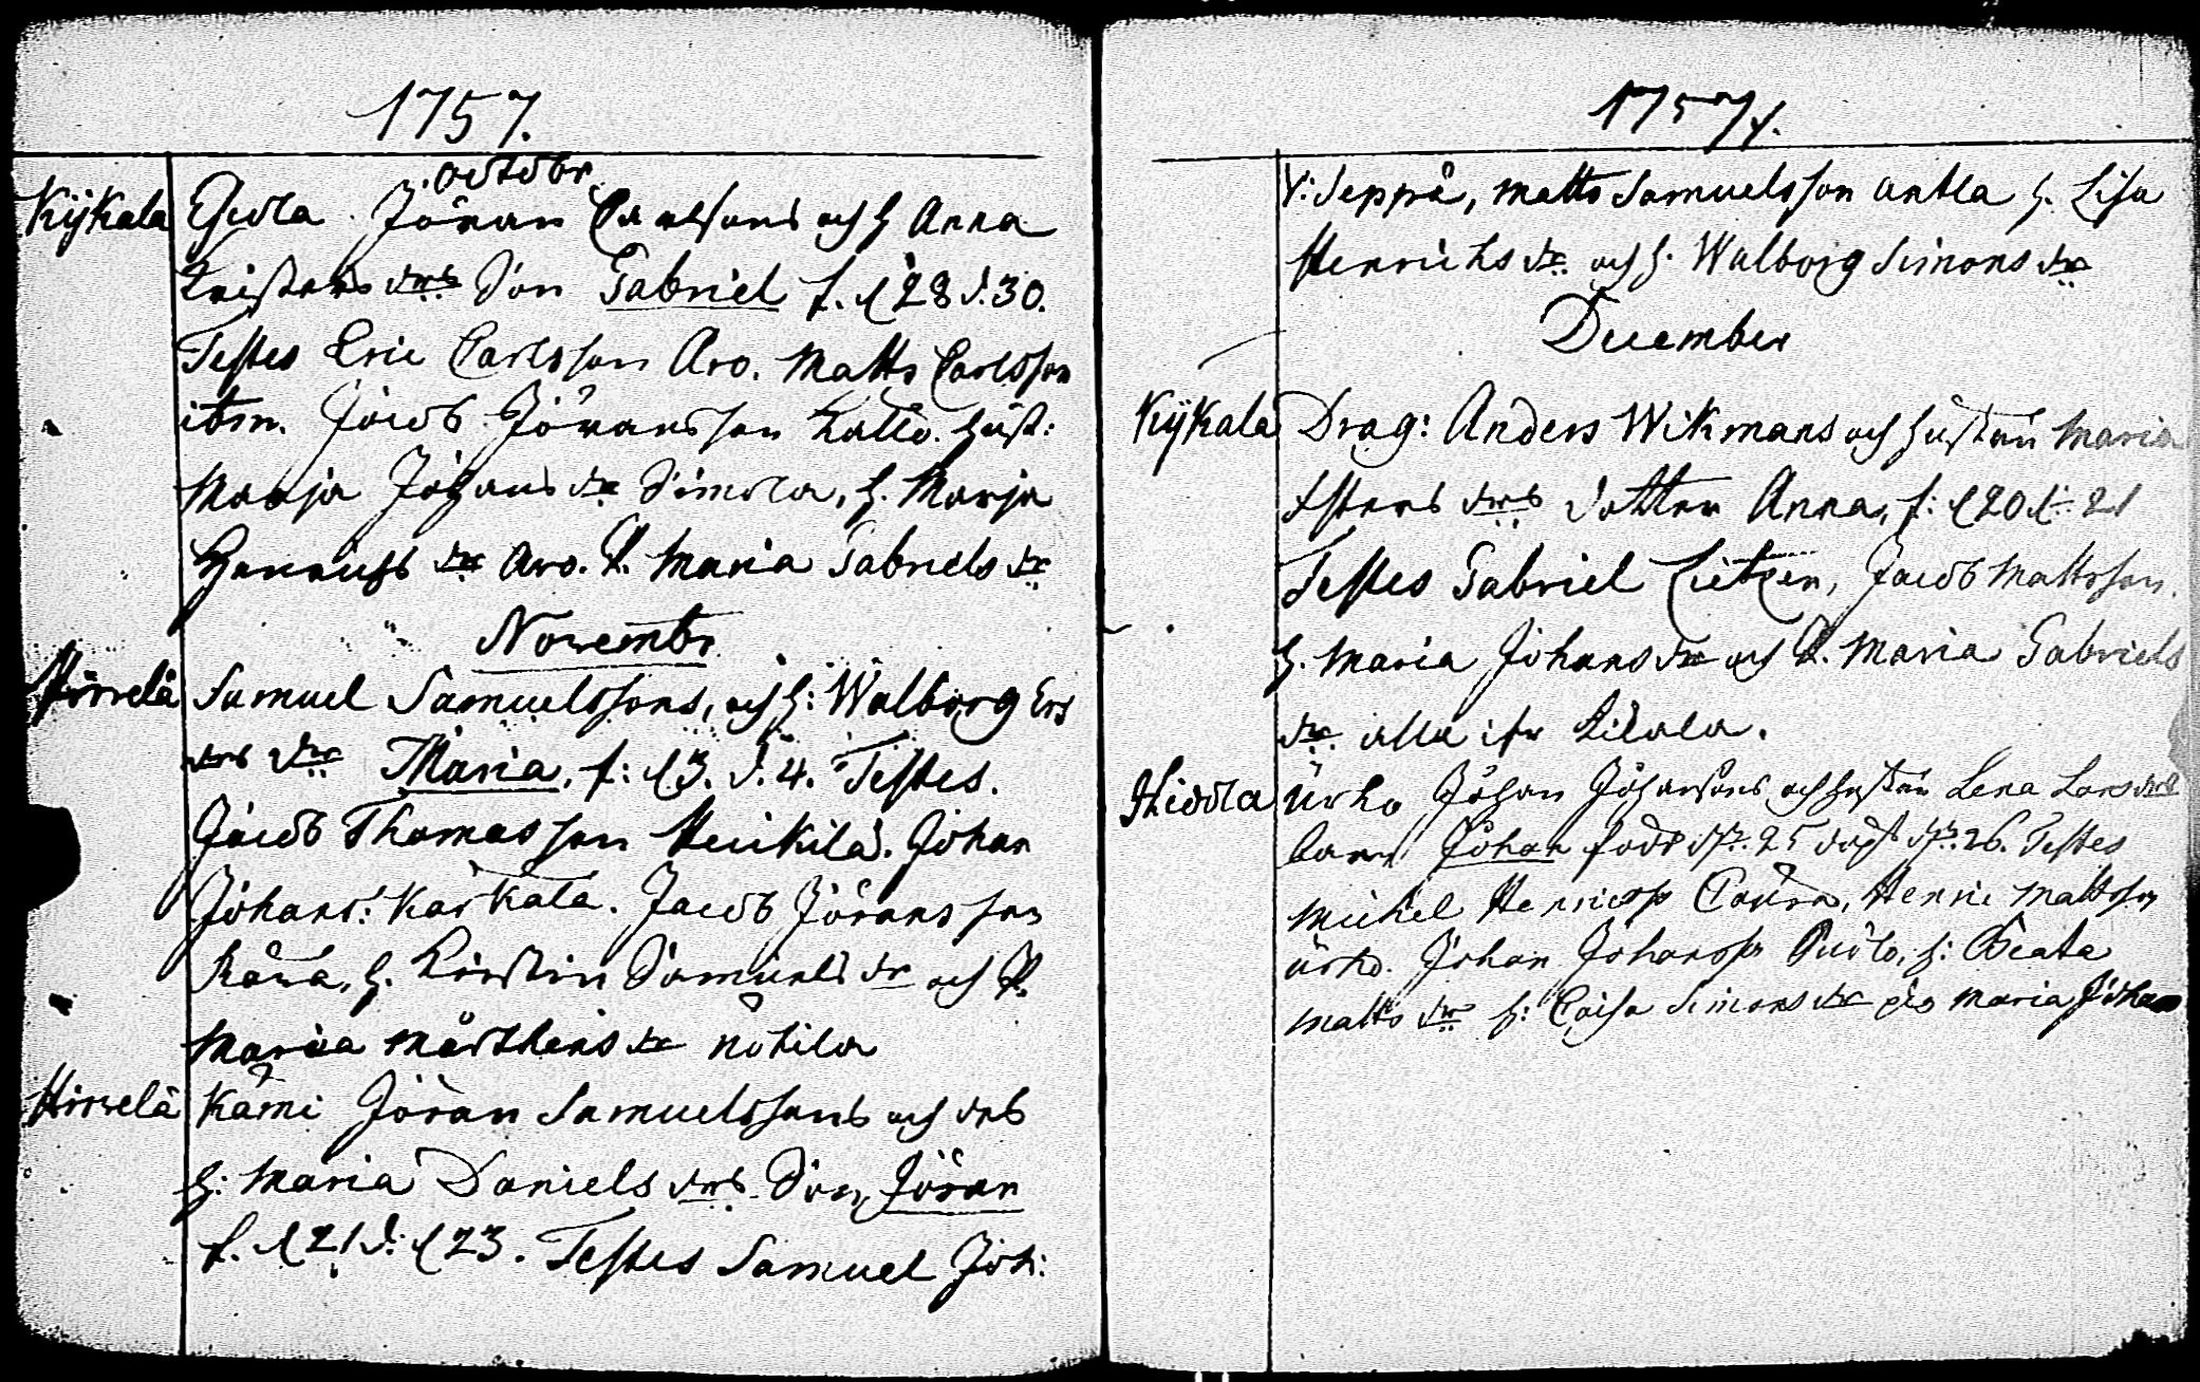 1757.
Octobr.
Kÿkala Jöran Carlsons och h Anna
drs Son Gabriel f. d 28 d. 30.
Testes Eric Carlsson Aro. Matts Carlsson
item. Jacob Jöransson Kallio. hust:
Marja Johans dr Simola, h. Marja
Henrichs dr Aro. P. Maria Gabriels dr
Novembr
Hirvelä Samuel Samuelssons, och h: Walborg Ers
drs dr Maria, f: d 3. d. 4. Testes.
Jacob Thomasson Heickilä. Johan
Johans: Karkala. Jacob Jöransson
h. Kirstin Samuels dr och P.
Maria Mårthens dr
Hirvelä Kämi Jöran Samuelssons och drs
h: Maria Daniels drs Son Jöran
f. d 21 d: d 23. Testes Samuel Joh:
1757
Seppä, Matts Samuelsson Antla h. Lisa
Henrichs dr och h. Walborg Simons dr
December
Kÿkala Drag: Anders Wikmans och hustrun Maria
drs dotter Anna, f: d 20 d: 21
Testes Gabriel Jacob Mattsson.
h. Maria Johans dr och P. Maria Gabriels
dr. alla ifr
Johan Johansons och hustrun Lena Lars drs
barn Johan född d. 25 döpt d. 26. Testes
Michel Henric Mattsson
Johan Johansson h: Beata
Matts dr h: Caisa Simons dr Maria Johans